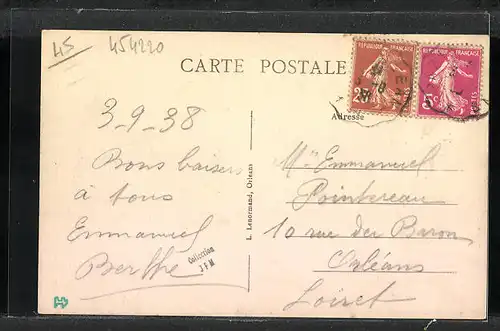 45
454220
CARTE POSTALE
REPUBLIQUE FRANÇAISE
REPUBLIQUE FRANÇAISE
Adresse
3-9-38
Bons baisers
à tous
Emmanuel
Berthe
Collection
J F M
L. Lenormand, Orléans
Mme Emmanuel
Pointereau
10 rue du Baron
Orléans
Loiret